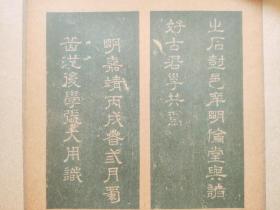 之石邑庠明倫堂與諸
好古君共焉
明嘉靖丙戌春弍月蜀
岳池後學張大用識